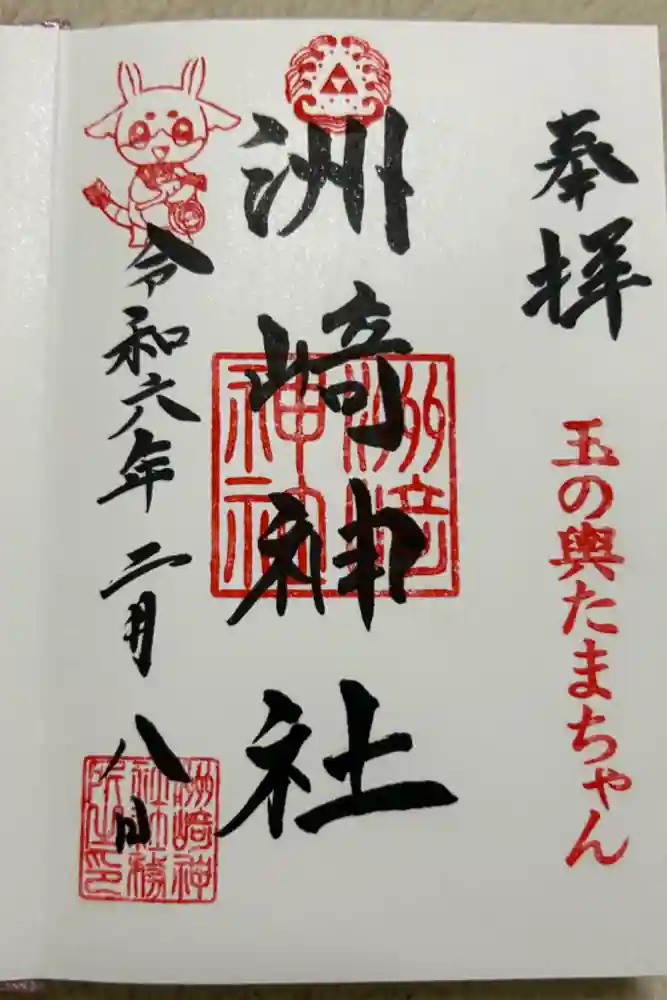 奉拝
玉の輿たまちゃん
洲崎神社
洲崎神社
令和六年二月八日
洲崎神社社務所之印